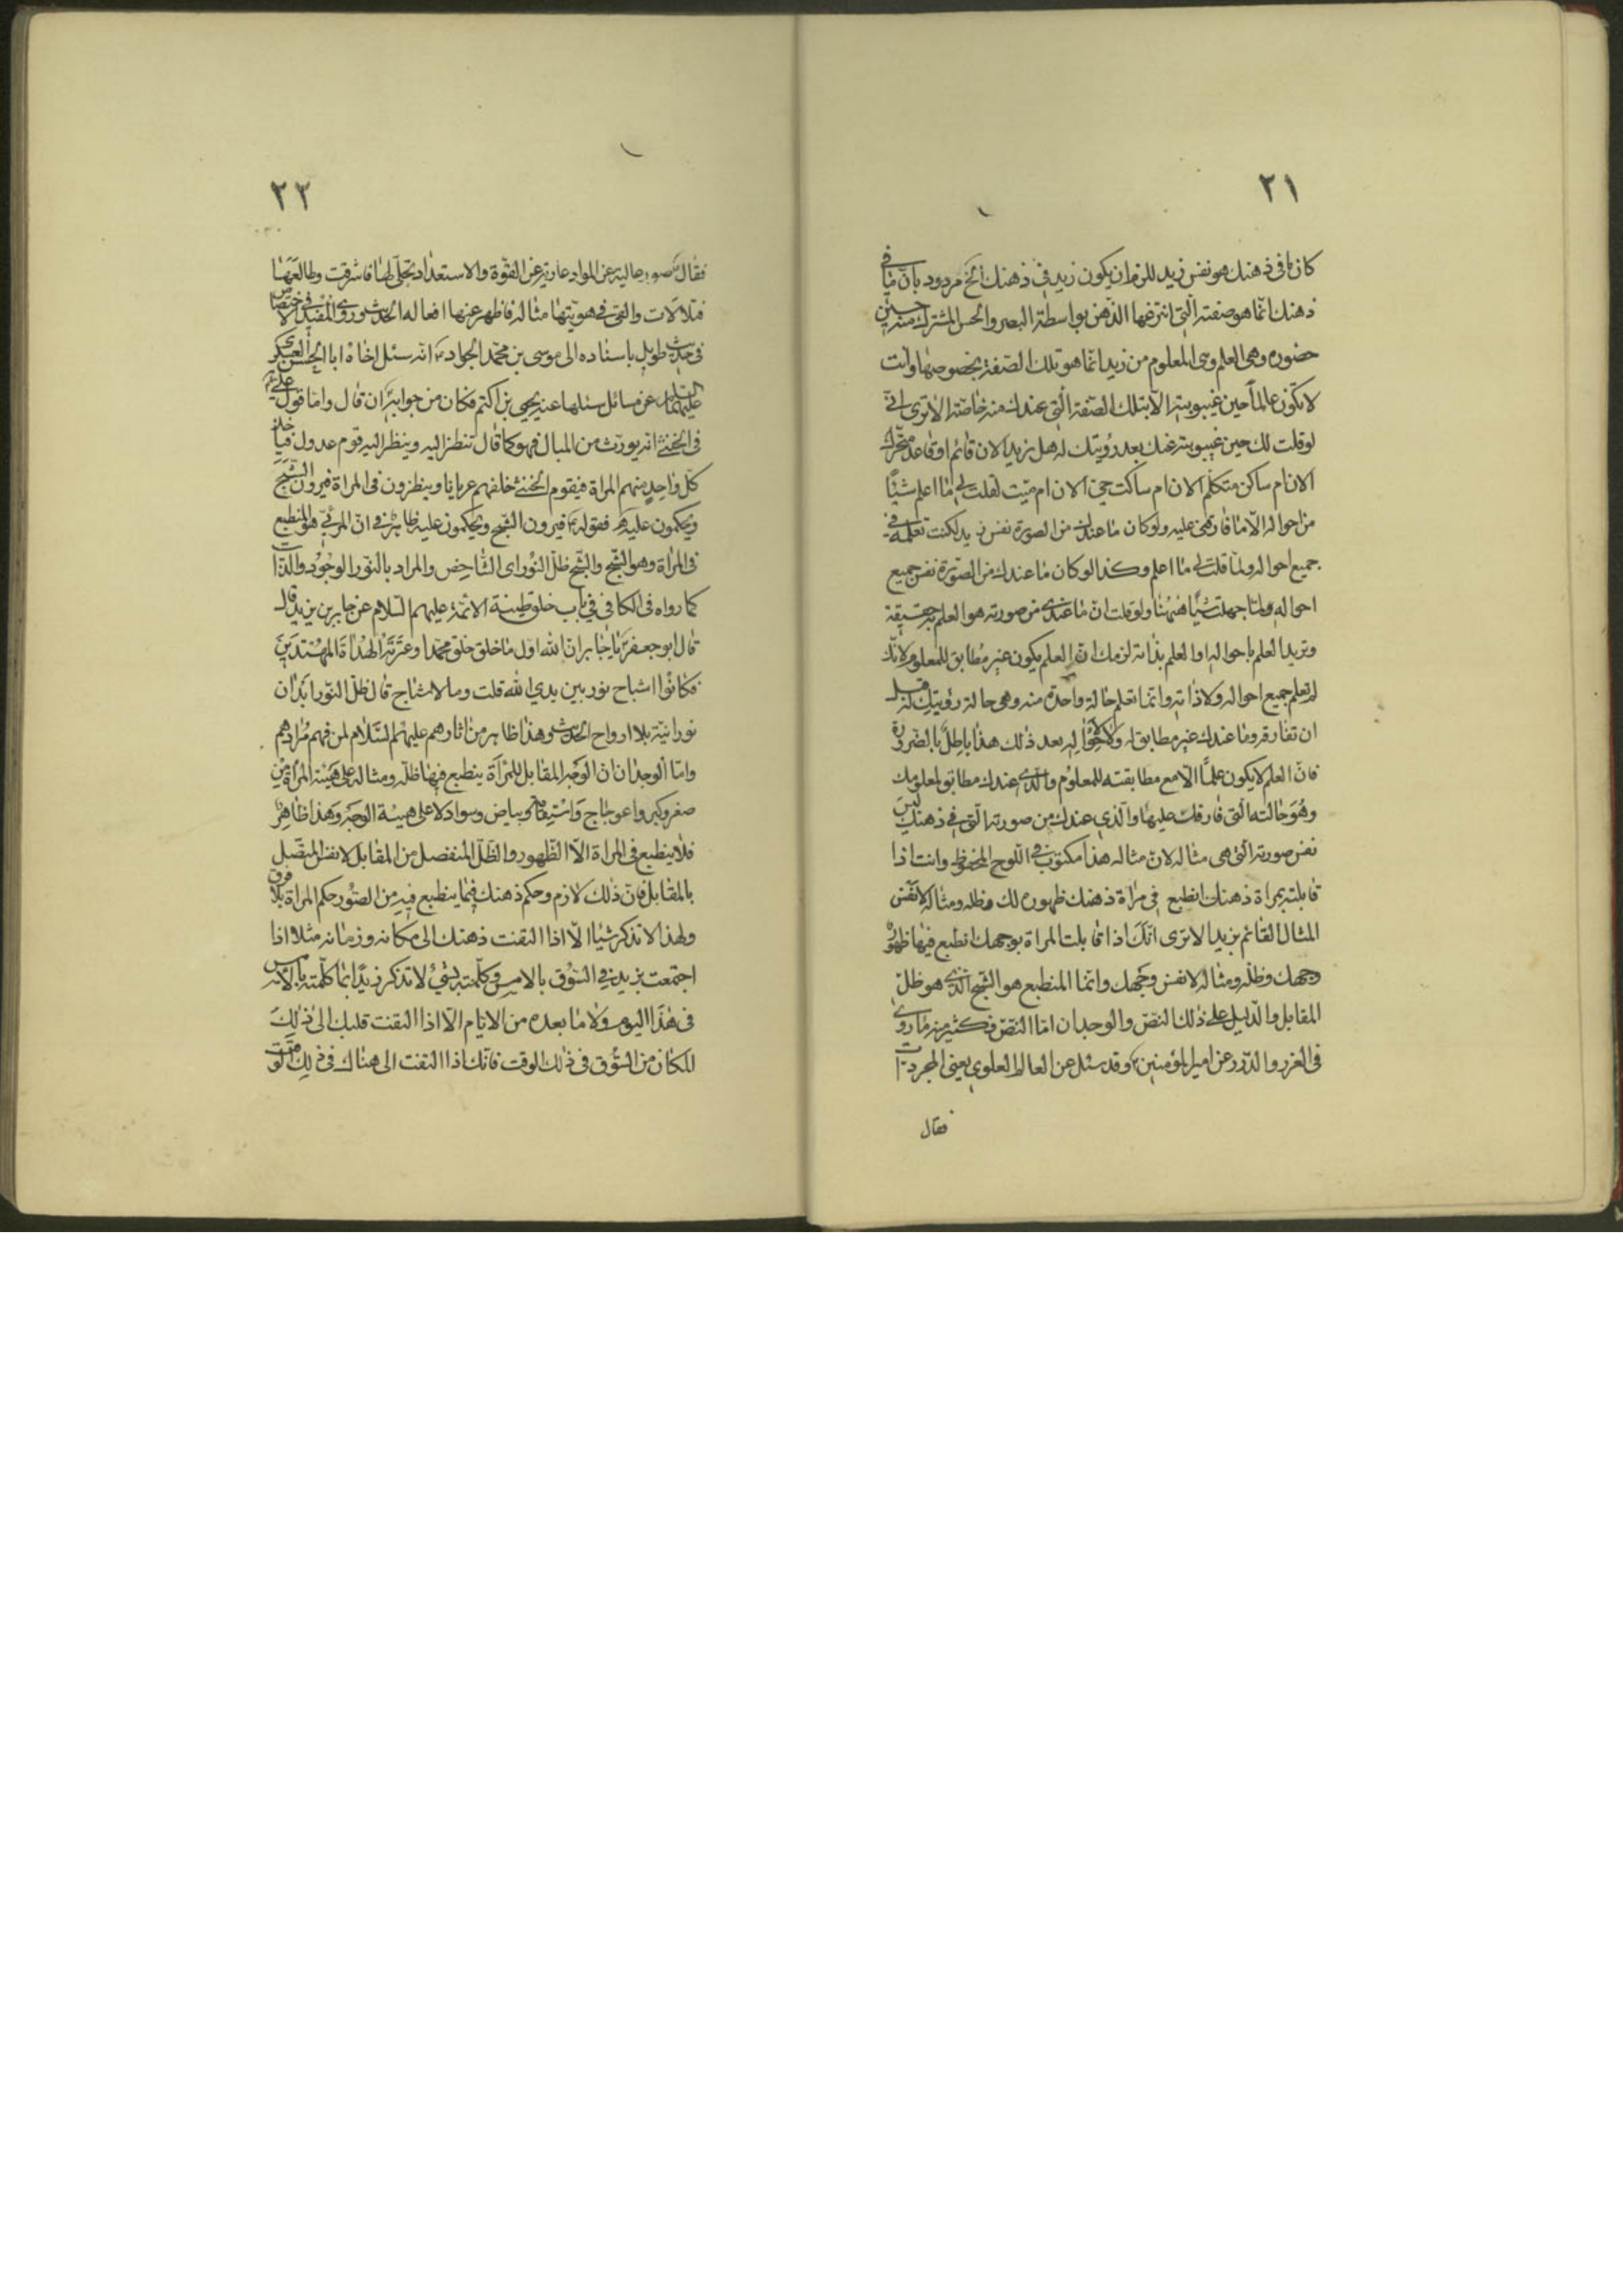 ٢١
كان ما فى ذهنك هو نفس زيد للزم ان يكون زيد فى ذهنك الخ مردود بانّ ما فى
ذهنك انّما هو صفته الّتى انتزعها الذّهن بواسطة البصر والحسّ المشترك منه حين
حضوره وهى العلم وهى المعلوم من زيد انّما هو تلك الصّفة بخصوصها وانت
لا تكون عالماً حين غيبوبته الّا بتلك الصّفة الّتى عندك منه خاصّة الا ترى انّى
لو قلت لك حين غيبوبته عنك بعد رؤيتك له هل زيد الان قائم او قاعد متحرّك
الان ام ساكن متكلّم الان ام ساكت حىّ الان ام ميّت لقلت لى ما اعلم شيئاً
من احواله الّا ما فارقنى عليه ولو كان ما عندك من الصورة نفس زيد لكنت تعلمه فى
جميع احواله ولما قلت لى ما اعلم وكذا لو كان ما عندك من الصّورة نفس جميع
احواله ولما جهلت شيئاً منها ولو قلت انّ ما عندى من صورته هو العلم به حقيقة
وتريد العلم باحواله او العلم بذاته لزمك انّ العلم يكون غير مطابق للمعلوم لانّك
لم تعلم جميع احواله ولا ذاته وانّما تعلم حالة واحدة منه وهى حالة رؤيتك له قبل
ان تفارقه وما عندك غير مطابق له ولاحواله بعد ذلك هذا باطل بالضّرورة
فانّ العلم لا يكون علماً الّا مع مطابقته للمعلوم والّذى عندك مطابق لمعلومك
وهو حالته الّتى فارقك عليها والّذى عندك من صورته الّتى فى ذهنك ليس
نفس صورته الّتى هى مثاله لانّ مثاله هذا مكتوب فى اللّوح المحفوظ وانت اذا
قابلته بمراة ذهنك انطبع فى مراة ذهنك ظهوره لك وظله ومثاله لا نفس
المثال القائم بزيد الا ترى انّك اذا قابلت المراة بوجهك انطبع فيها ظهور
وجهك وظلّه ومثاله لا نفس وجهك وانّما المنطبع هو الشّبح الّذى هو ظلّ
المقابل والدّليل على ذلك النصّ والوجدان امّا النصّ فكثير منه ما روى
فى الغرر والدّرر عن امير المؤمنين ع وقد سئل عن العالم العلوى يعنى المجردات
فقال
٢٢
فقال ع صور عالية عن المواد عارية عن القوّة والاستعداد تجلّى لها فاشرقت وطالعها
فتلالات والقى فى هويّتها مثاله فاظهر عنها افعاله الحديث وروى المفيد فى الاختصاص
فى حديث طويل باسناده الى موسى بن محمّد الجواد ع انّه سئل اخاه ابا الحسن العسكرى
عليهما السلام عن مسائل سئلها عنه يحيى بن اكثم فكان من جوابه ع ان قال وامّا قول علىّ ع
فى الخنثى انّه يورث من المبال فهو كما قال تنظر اليه وينظر اليه قوم عدول فياخذ
كلّ واحد منهم المراة فيقوم الخنثى خلفهم عريانا وينظرون فى المراة فيرون الشّبح
ويحكمون عليه فقوله ع فيرون الشّبح ويحكمون عليه ظاهر فى انّ المرئىّ هو المنطبع
فى المراة وهو الشّبح والشّبح ظلّ النّور اى الشّاخص والمراد بالنّور الوجود والذّات
كما رواه فى الكافى فى باب خلق طينة الائمّة عليهم السّلام عن جابر بن يزيد قال
قال ابو جعفر ع يا جابر انّ الله اول ما خلق خلق محمّدا وعترته الهداة المهتدين
فكانوا اشباح نور بين يدى الله قلت وما الاشباح قال ظلّ النّور ابدان
نورانيّة بلا ارواح الحديث وهذا ظاهر من اثارهم عليهم السّلام لمن فهم مرادهم
وامّا الوجدان فانّ الوجه المقابل للمراة ينطبع فيها ظلّه ومثاله على هيئة المراة من
صغر وكبر واعوجاج واستقامة وبياض وسواد لا على هيئة الوجه وهذا ظاهر
فلا ينطبع فى المراة الّا الظّهور والظّلّ المنفصل من المقابل لا نفس المتّصل
بالمقابل فانّ ذلك لازم وحكم ذهنك فيما ينطبع فيه من الصّور حكم المراة بلا فرق
ولهذا لا تذكر شيئا الّا اذا التفت ذهنك الى مكانه وزمانه مثلا اذا
اجتمعت بزيد فى السّوق بالامس وكلّمته بشىء لا تذكر زيدا بما كلّمته بالامس
فى هذا اليوم ولا ما بعده من الايّام الّا اذا التفت قلبك الى ذلك
المكان من السّوق فى ذلك الوقت فانّك اذا التفت الى هناك فى ذلك الوقت